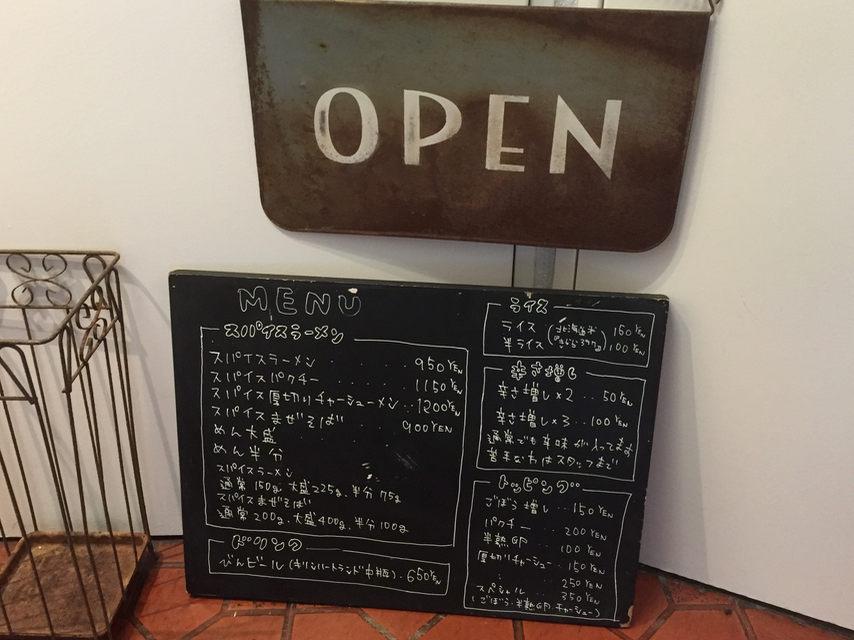 OPEN
MENU
スパイスラーメン
スパイスラーメン ..... 950YEN
スパイスパクチー .... 1150YEN
スパイス厚切りチャーシューメン .. 1200YEN
スパイスまぜそば .... 900YEN
めん大盛
めん半分
スパイスラーメン
通常150g、大盛225g、半分75g
スパイスまぜそば
通常200g、大盛400g、半分100g
ドリンク
びんビール(キリンハートランド中瓶)・650YEN
ライス
ライス (北海道米 150YEN
半ライス 100YEN
辛さ増し
辛さ増し×2 ... 50YEN
辛さ増し×3 ... 100YEN
通常でも辛味が入ってます
苦手な方はスタッフまで
トッピング
ごぼう増し ... 150YEN
パクチー ... 200YEN
半熟 100YEN
厚切りチャーシュー .. 150YEN
: 250YEN
スペシャル 350YEN
(ごぼう・半熟・チャーシュー)